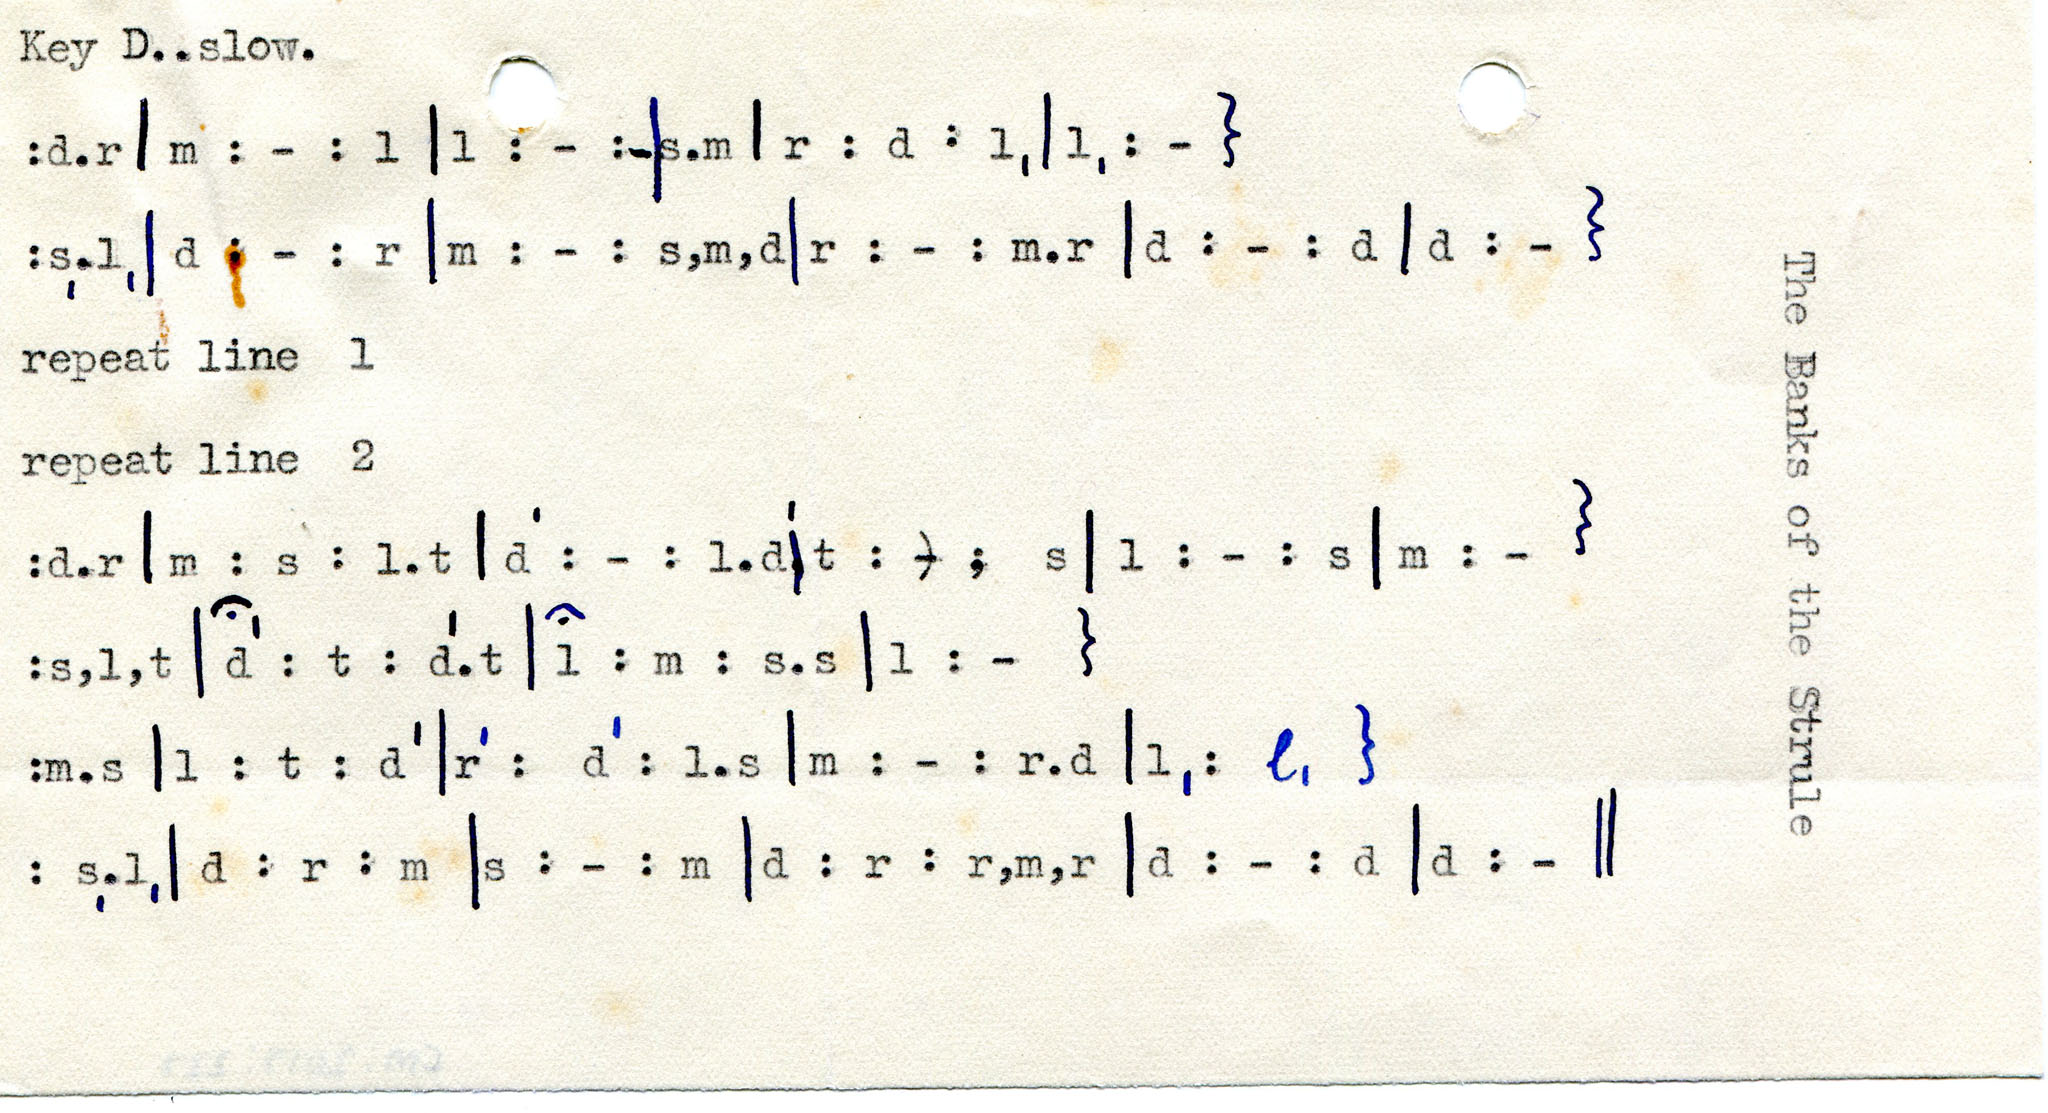 Key D..slow.
:d.r | m : - : l | l : - :- | s.m | r : d : l, | l, : - }
:s,.l, | d : - : r | m : - : s,m,d | r : - : m.r | d : - : d | d : - }
repeat line 1
repeat line 2
:d.r | m : s : l.t | d' : - : l.d' | t : - ; s | l : - : s | m : - }
:s,l,t | d' : t : d'.t | l : m : s.s | l : - }
:m.s | l : t : d' | r' : d' : l.s | m : - : r.d | l, : l, }
: s,.l, | d : r : m | s : - : m | d : r : r,m,r | d : - : d | d : - ||
The Banks of the Strule